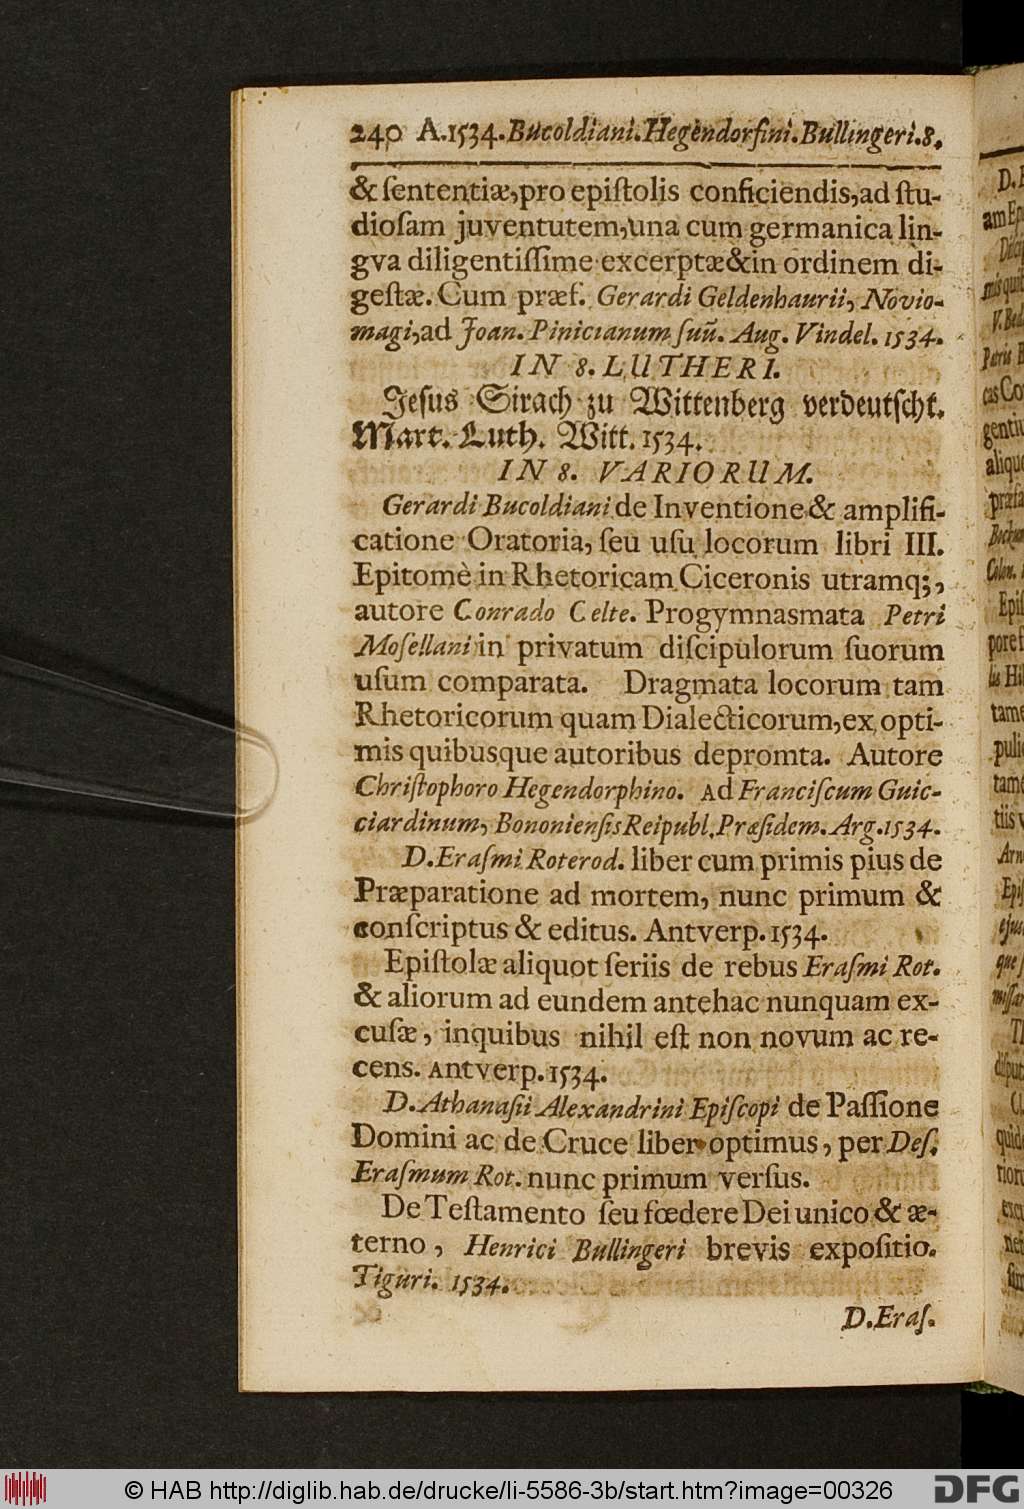 240 A.1534.Bucoldiani.Hegendorfini.Bullingeri.8.
& ſententiæ,pro epiſtolis conficiendis,ad ſtu-
dioſam juventutem,una cum germanica lin-
gva diligentiſſime excerptæ&in ordinem di-
geſtæ. Cum præf. Gerardi Geldenhaurii, Novio-
magi,ad Joan. Pinicianum ſuū. Aug. Vindel. 1534.
IN 8. LUTHERI.
Jeſus Sirach zu Wittenberg verdeutſcht.
Mart. Luth. Witt. 1534.
IN 8. VARIORUM.
Gerardi Bucoldiani de Inventione & amplifi-
catione Oratoria, ſeu uſu locorum libri III.
Epitomè in Rhetoricam Ciceronis utramq;,
autore Conrado Celte. Progymnasmata Petri
Moſellani in privatum diſcipulorum ſuorum
uſum comparata. Dragmata locorum tam
Rhetoricorum quam Dialecticorum,ex opti-
mis quibusque autoribus depromta. Autore
Chriſtophoro Hegendorphino. Ad Franciſcum Guic-
ciardinum, Bononienſis Reipubl. Præſidem. Arg.1534.
D.Eraſmi Roterod. liber cum primis pius de
Præparatione ad mortem, nunc primum &
conſcriptus & editus. Antverp. 1534.
Epiſtolæ aliquot ſeriis de rebus Eraſmi Rot.
& aliorum ad eundem antehac nunquam ex-
cuſæ, inquibus nihil eſt non novum ac re-
cens. Antverp. 1534.
D. Athanaſii Alexandrini Epiſcopi de Paſſione
Domini ac de Cruce liber optimus, per Deſ.
Eraſmum Rot. nunc primum verſus.
De Teſtamento ſeu fœdere Dei unico & æ-
terno, Henrici Bullingeri brevis expoſitio.
Tiguri. 1534.
D.Eraſ.
© HAB http://diglib.hab.de/drucke/li-5586-3b/start.htm?image=00326
DFG